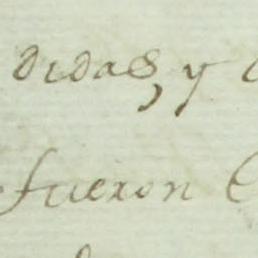 didas, y
fueron